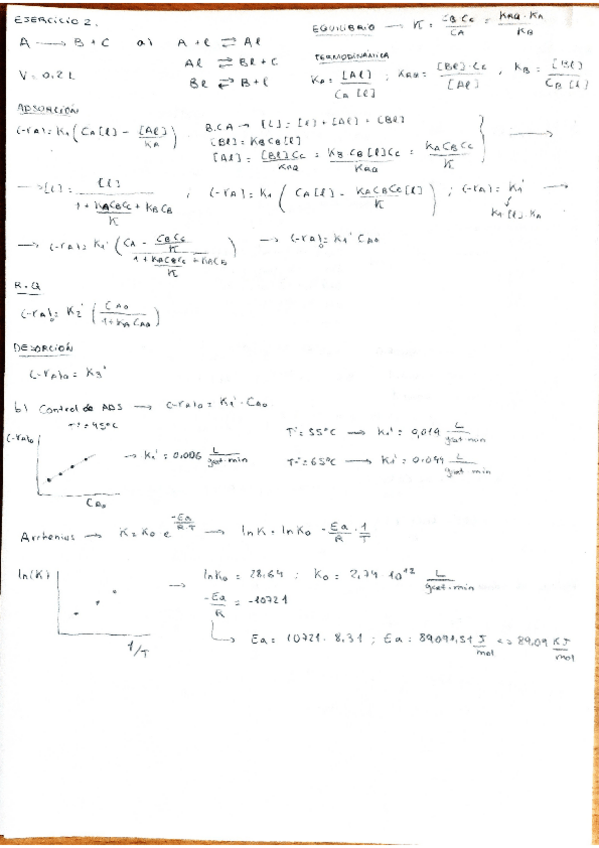 EJERCICIO 2.
A ⟶ B + C   a)   A + l ⇌ Al
Al ⇌ Bl + C
V = 0.2 L   Bl ⇌ B + l
EQUILIBRIO → K = CB CC / CA = KRQ · KA / KB
TERMODINÁMICA
KA = [Al] / CA [l] ; KRQ = [Bl] · CC / [Al] , KB = [Bl] / CB [l]
ADSORCIÓN
(-rA) = K1 ( CA [l] - [Al] / KA )
B.CA → [L] = [l] + [Al] + [Bl]
[Bl] = KB CB [l]
[Al] = [Bl] CC / KRQ = KB CB [l] CC / KRQ = KA CB CC / K } ⟶
→ [l] = [L] / 1 + KA CB CC / K + KB CB ; (-rA) = K1 ( CA [l] - KA CB CC [l] / K ) ; (-rA) = K1' →
K1 [l] · KA
→ (-rA) = K1' ( CA - CB CC / K / 1 + KA CB CC / K + KB CB ) → (-rA)0 = K1' CA0
R.Q
(-rA)0 = K2' ( CA0 / 1 + KA CA0 )
DESORCIÓN
(-rA)0 = K3'
b) Control de ADS → (-rA)0 = K1' · CA0
T = 45ºC
(-rA)0   → K1' = 0,006 L / gcat·min
T = 55ºC → K1' = 0,019 L / gcat·min
T = 65ºC → K1' = 0.044 L / gcat·min
CA0
Arrhenius → K = K0 e -Ea / R·T → ln K = ln K0 - Ea / R · 1 / T
ln(K)   → ln K0 = 28,64 ; K0 = 2,74 10¹² L / gcat·min
-Ea / R = -10721
1/T
→ Ea = 10721 · 8,31 ; Ea = 89091,51 J / mol <> 89,09 KJ / mol